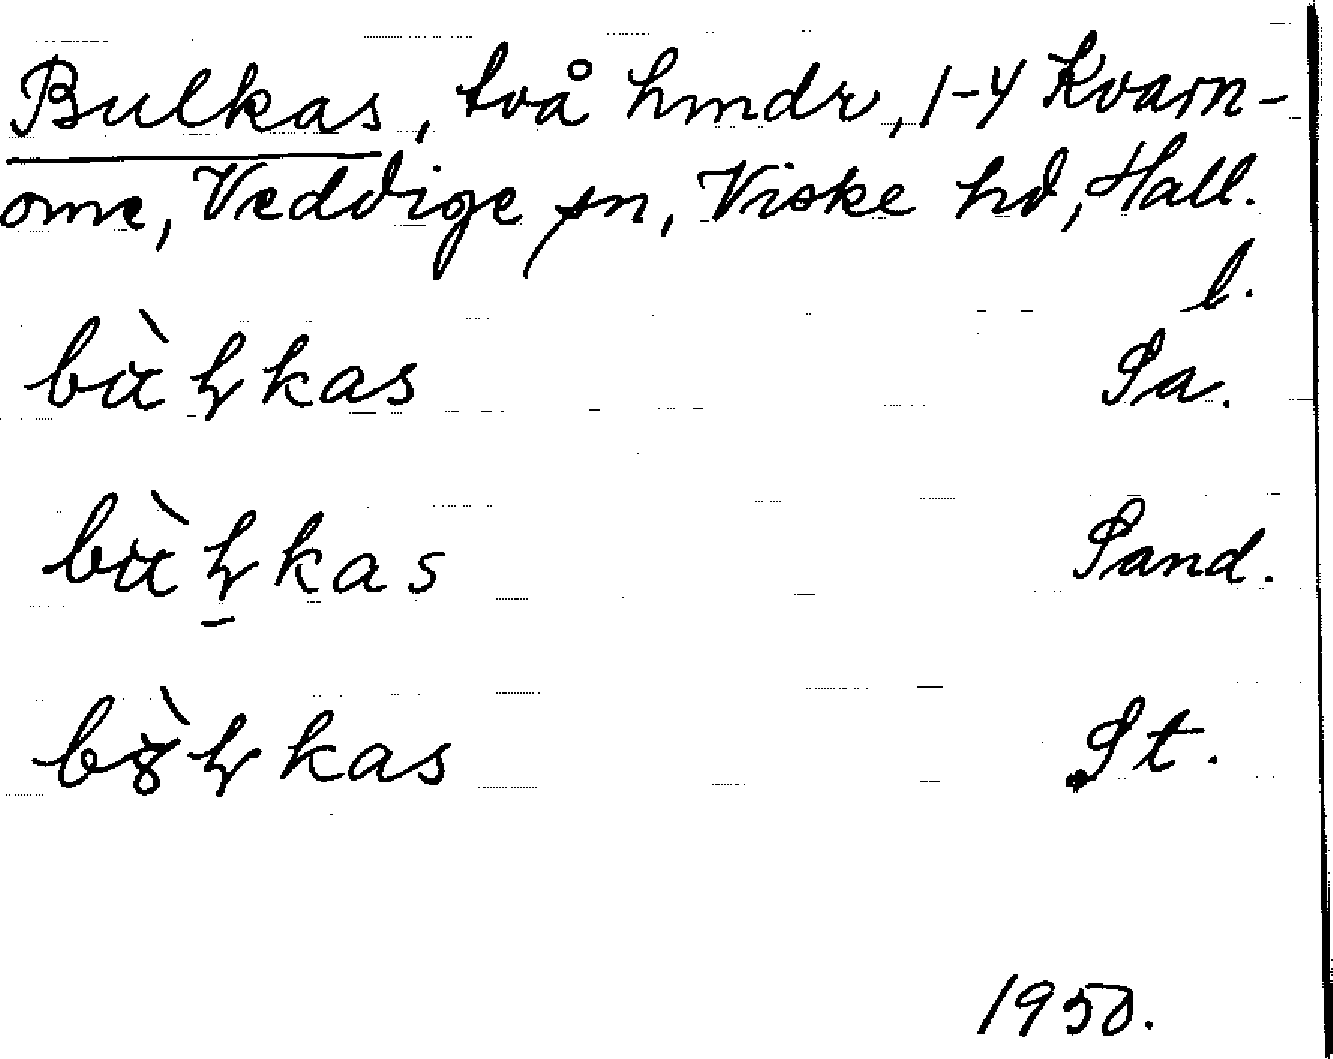 Bulkas, två hmdr, 1-4 Kvarn-
ome, Veddige sn, Viske hd, Hall.
l.
bùɽkas Sa.
bùɽkas Sand.
bȣ̀ɽkas St.
1950.